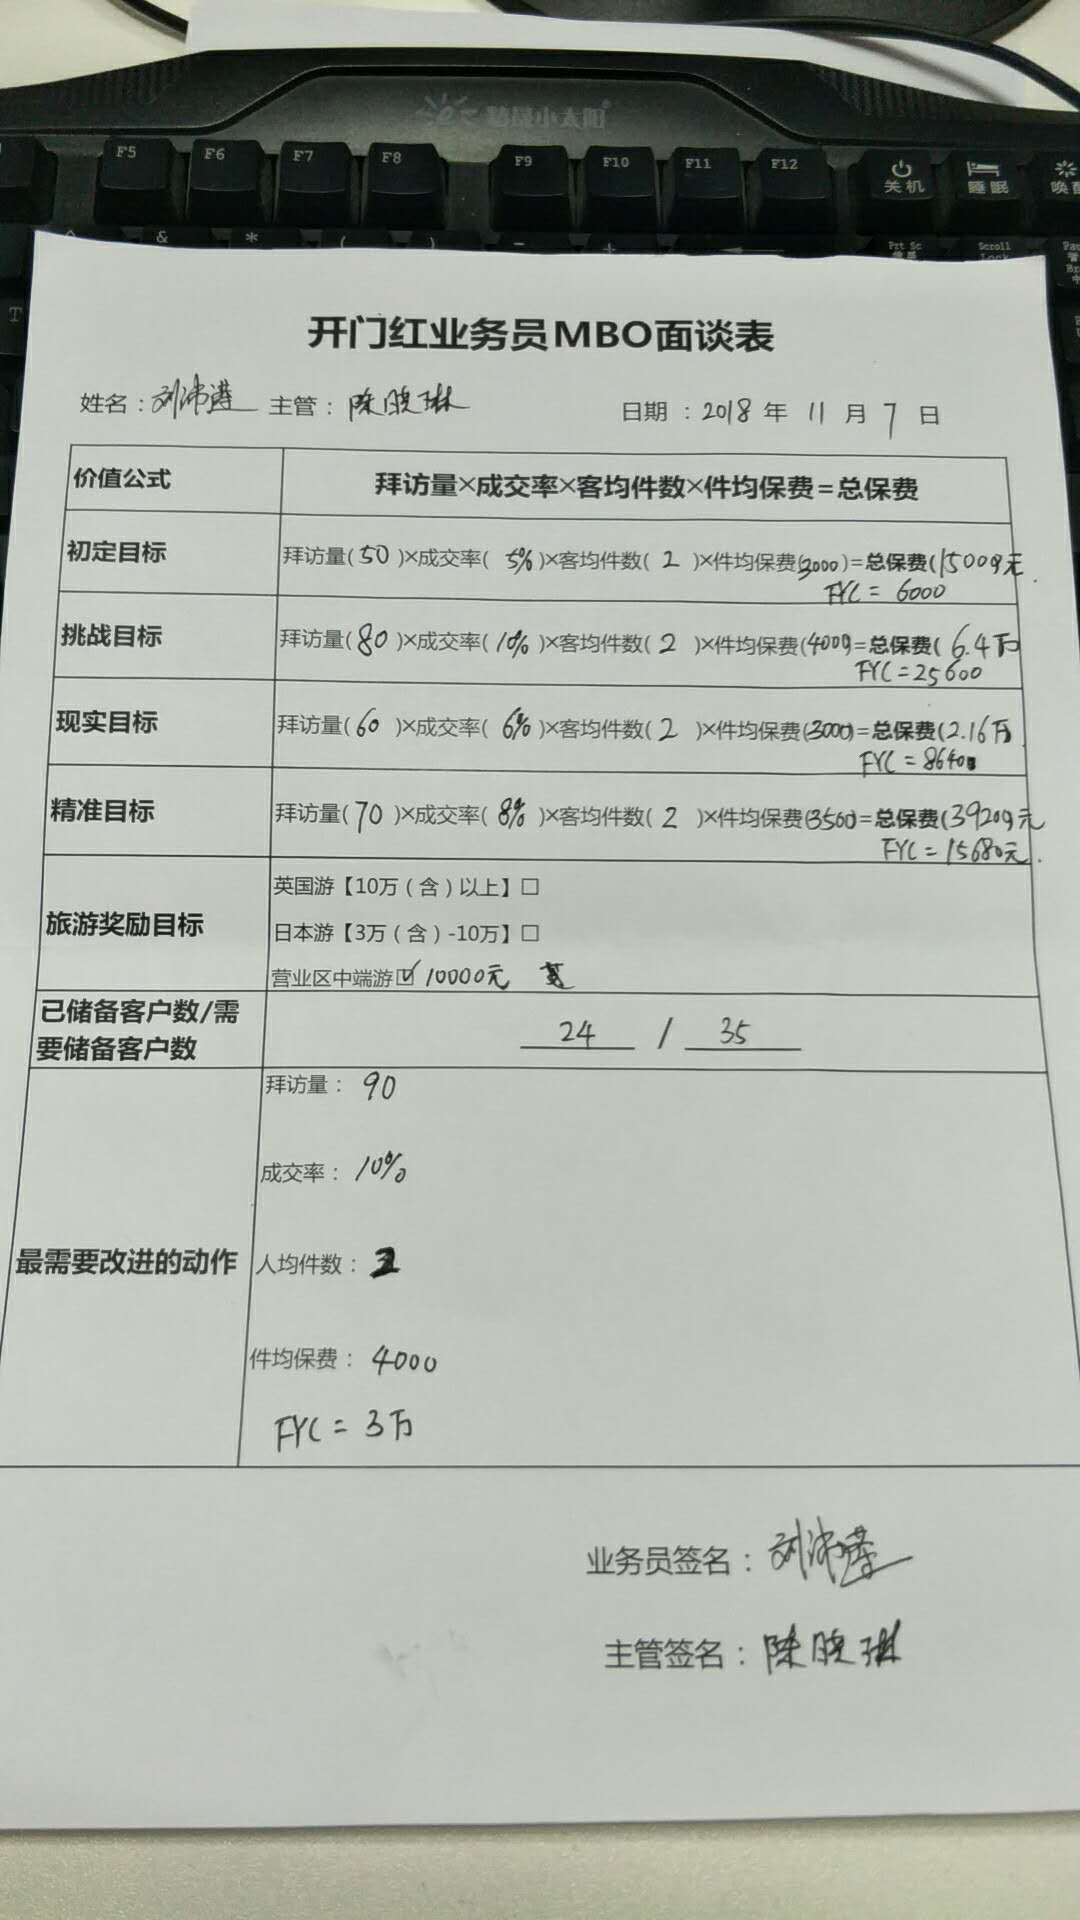 小太阳
F5 F6 F7 F8 F9 F10 F11 F12 关机 睡眠
& * ( ) - +
Prt Sc Scroll Lock
T
开门红业务员MBO面谈表
姓名：刘沛莲 主管：陈晓琳 日期：2018 年 11 月 7 日
价值公式 拜访量×成交率×客均件数×件均保费=总保费
初定目标 拜访量(50)×成交率(5%)×客均件数(2)×件均保费(3000)=总保费(15000元
FYC = 6000
挑战目标 拜访量(80)×成交率(10%)×客均件数(2)×件均保费(4000)=总保费(6.4万
FYC=25600
现实目标 拜访量(60)×成交率(6%)×客均件数(2)×件均保费(3000)=总保费(2.16万
FYC = 8640
精准目标 拜访量(70)×成交率(8%)×客均件数(2)×件均保费(3500)=总保费(39200元
FYC = 15680元.
旅游奖励目标
英国游【10万（含）以上】□
日本游【3万（含）-10万】□
营业区中端游☑ 10000元
已储备客户数/需要储备客户数 24 / 35
最需要改进的动作
拜访量：90
成交率：10%
人均件数：2
件均保费：4000
FYC = 3万
业务员签名：刘沛莲
主管签名：陈晓琳